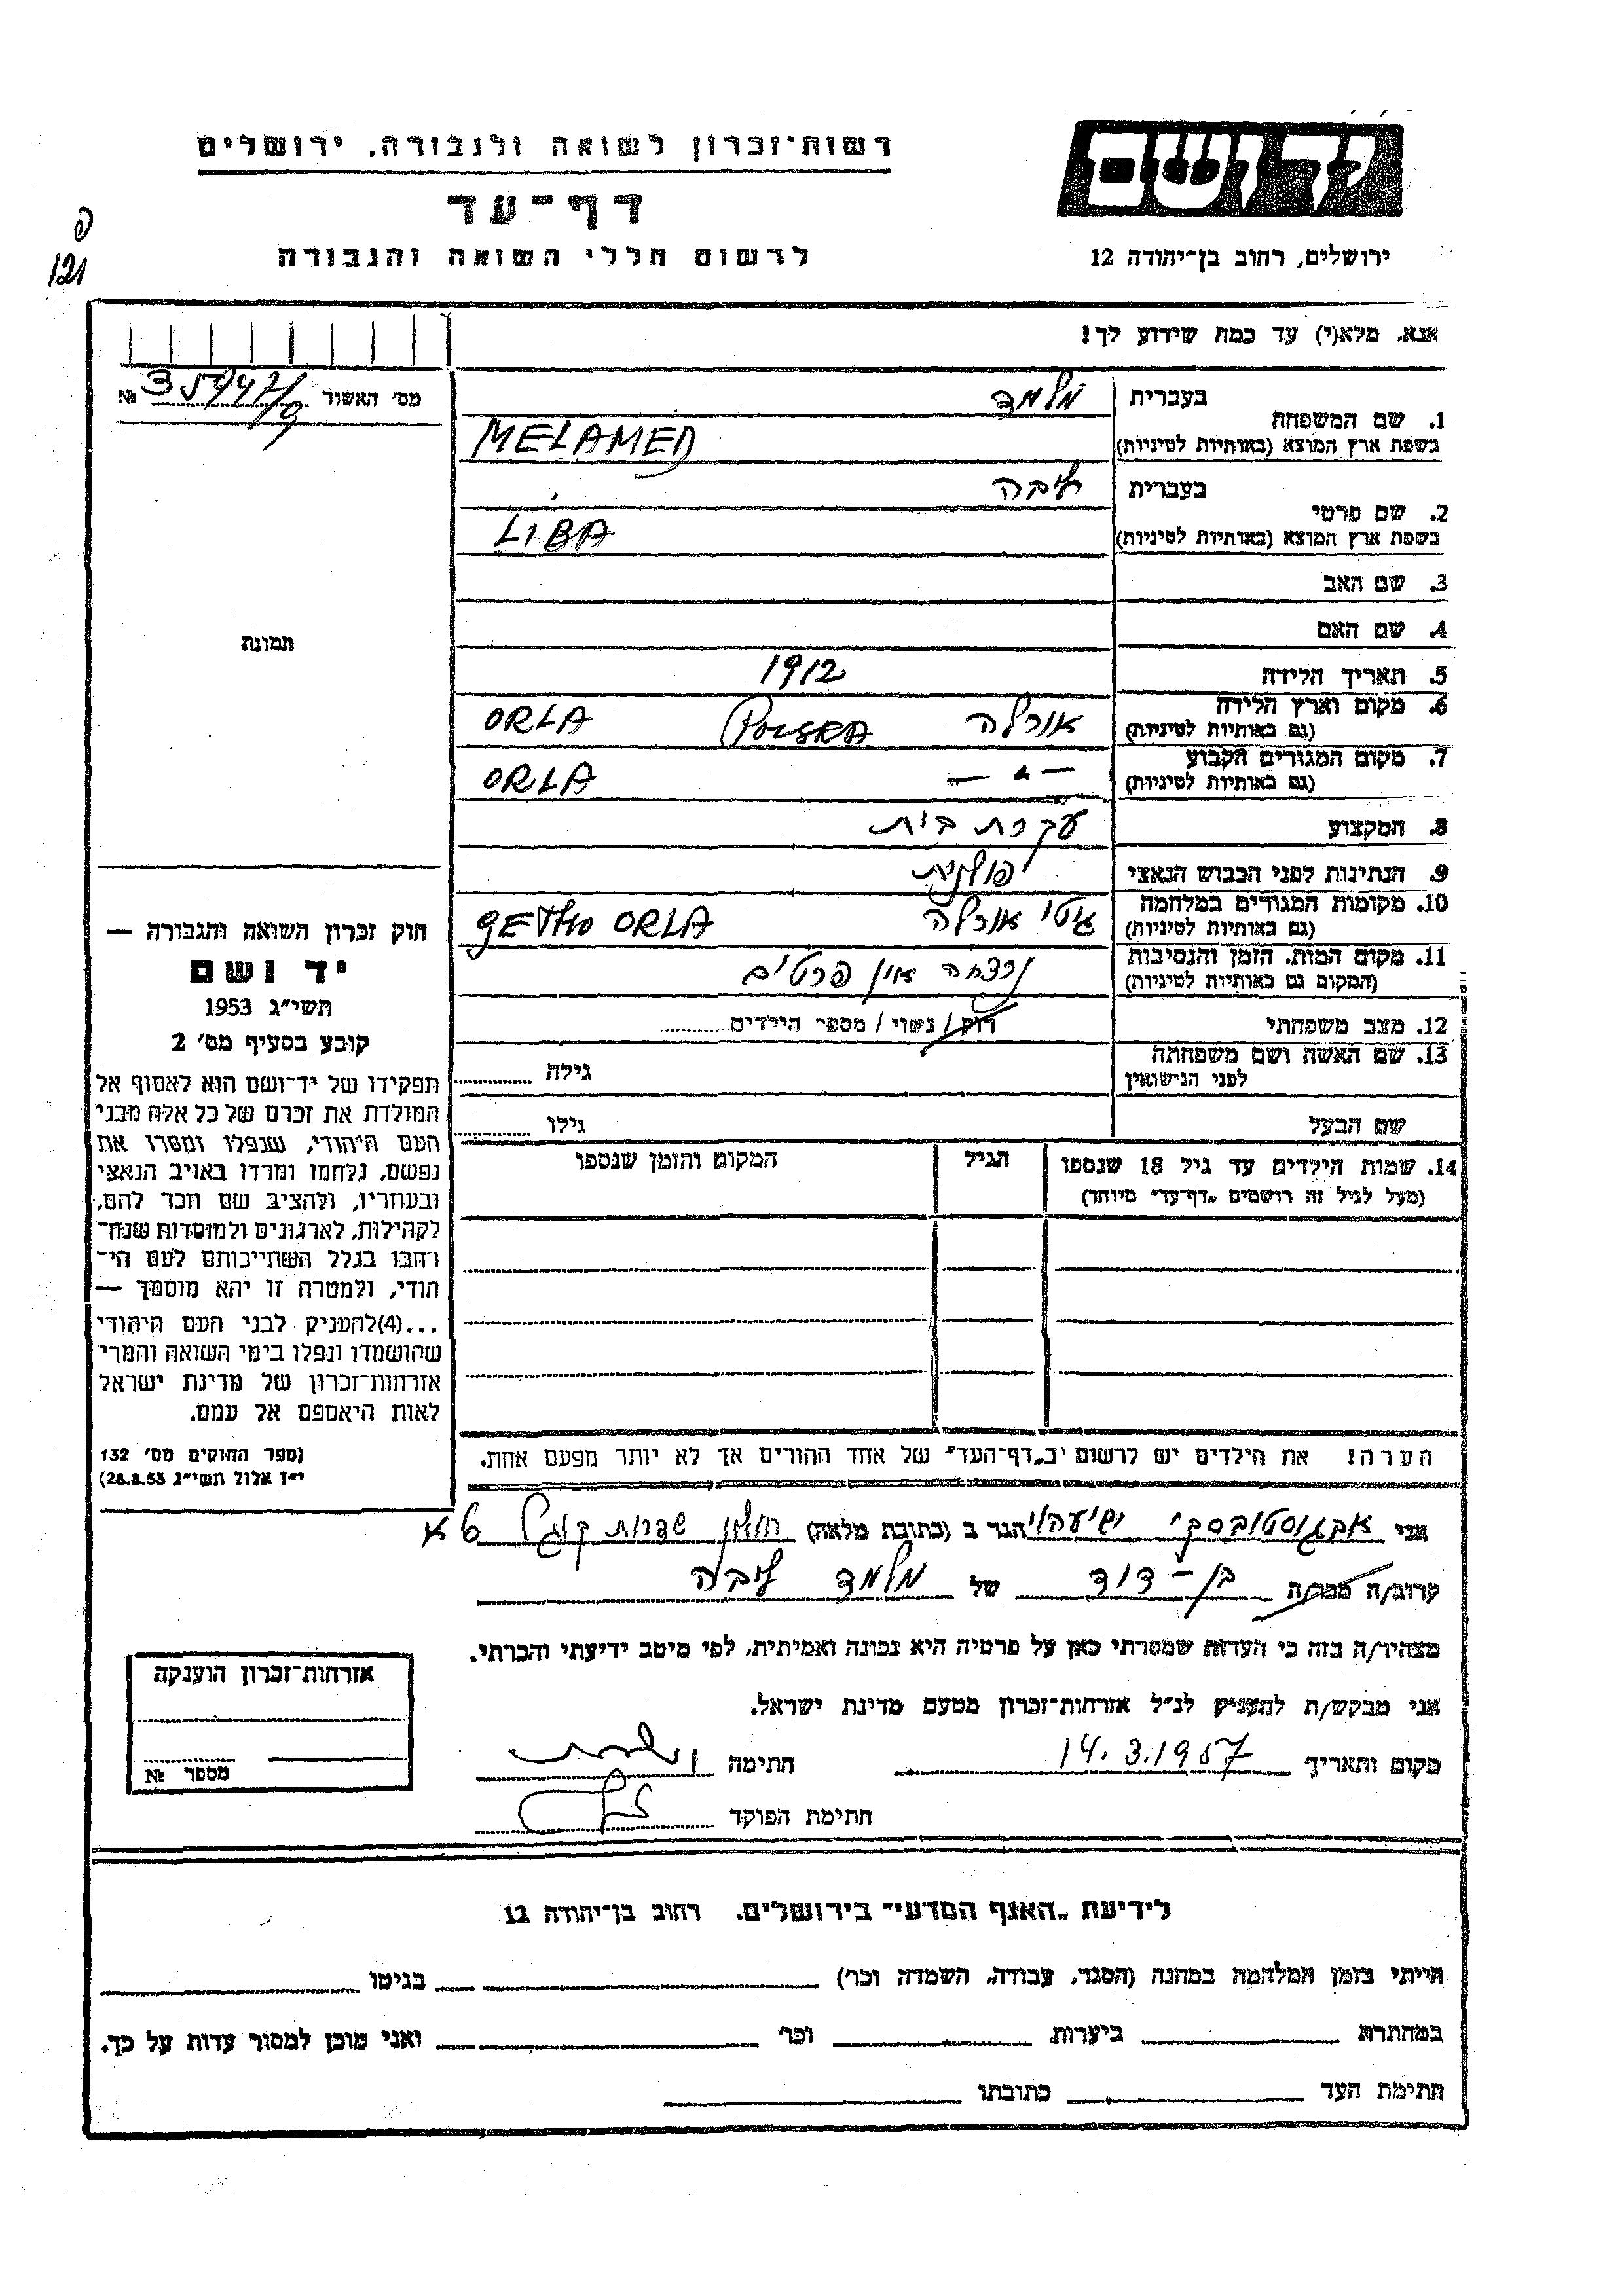 רשות־זכרון לשואה ולגבורה, ירושלים
ידושם
דף־עד
לרשום חללי השואה והגבורה
ירושלים, רחוב בן־יהודה 12
פ
121
אנא, מלא(י) עד כמה שידוע לך!
מס׳ האשור № 35447/9
תמונת
1. שם המשפחה
בעברית מלמד
בשפת ארץ המוצא (באותיות לטיניות) MELAMED
2. שם פרטי
בעברית ליבה
בשפת ארץ המוצא (באותיות לטיניות) LIBA
3. שם האב
4. שם האם
5. תאריך הלידה 1912
6. מקום וארץ הלידה (גם באותיות לטיניות) אורלה POLSKA ORLA
7. מקום המגורים הקבוע (גם באותיות לטיניות) — " — ORLA
8. המקצוע עקרת בית
9. הנתינות לפני הכבוש הנאצי פולנית
10. מקומות המגורים במלחמה (גם באותיות לטיניות) גיטו אורלה GETHO ORLA
11. מקום המות, הזמן והנסיבות (המקום גם באותיות לטיניות) נרצחה אין פרטים
12. מצב משפחתי רוק/נשוי/מספר הילדים
13. שם האשה ושם משפחתה לפני הנישואין גילה
שם הבעל גילו
14. שמות הילדים עד גיל 18 שנספו
(מעל לגיל זה רושמים „דף־עד״ מיוחד)
הגיל
המקום והזמן שנספו
הערה! את הילדים יש לרשום ב„דף־העד״ של אחד ההורים אך לא יותר מפעם אחת.
חוק זכרון השואה והגבורה —
יד ושם
תשי״ג 1953
קובע בסעיף מס׳ 2
תפקידו של יד־ושם הוא לאסוף אל
המולדת את זכרם של כל אלה מבני
העם היהודי, שנפלו ומסרו את
נפשם, נלחמו ומרדו באויב הנאצי
ובעוזריו, ולהציב שם וזכר להם,
לקהילות, לארגונים ולמוסדות שנח־
רבו בגלל השתייכותם לעם הי־
הודי, ולמטרה זו יהא מוסמך —
...(4)להעניק לבני העם היהודי
שהושמדו ונפלו בימי השואה והמרי
אזרחות־זכרון של מדינת ישראל
לאות היאספם אל עמם.
(ספר החוקים מס׳ 132
י״ז אלול תשי״ג 28.8.53)
אני אבגוסטובסקי ישעיהו הגר ב (כתובת מלאה) חולון שדרות קוגל 6 א
קרוב/ה מכר/ה בן־דוד של מלמד ליבה
מצהיר/ה בזה כי העדות שמסרתי כאן על פרטיה היא נכונה ואמיתית, לפי מיטב ידיעתי והכרתי.
אני מבקש/ת להעניק לנ״ל אזרחות־זכרון מטעם מדינת ישראל.
מקום ותאריך 14.3.1957 חתימה
חתימת הפוקד
אזרחות־זכרון הוענקה
מספר №
לידיעת „האגף המדעי״ בירושלים, רחוב בן־יהודה 12
הייתי בזמן המלחמה במחנה (הסגר, עבודה, השמדה וכר׳) בגיטו
במחתרת ביערות וכר׳ ואני מוכן למסור עדות על כך.
חתימת העד כתובתו